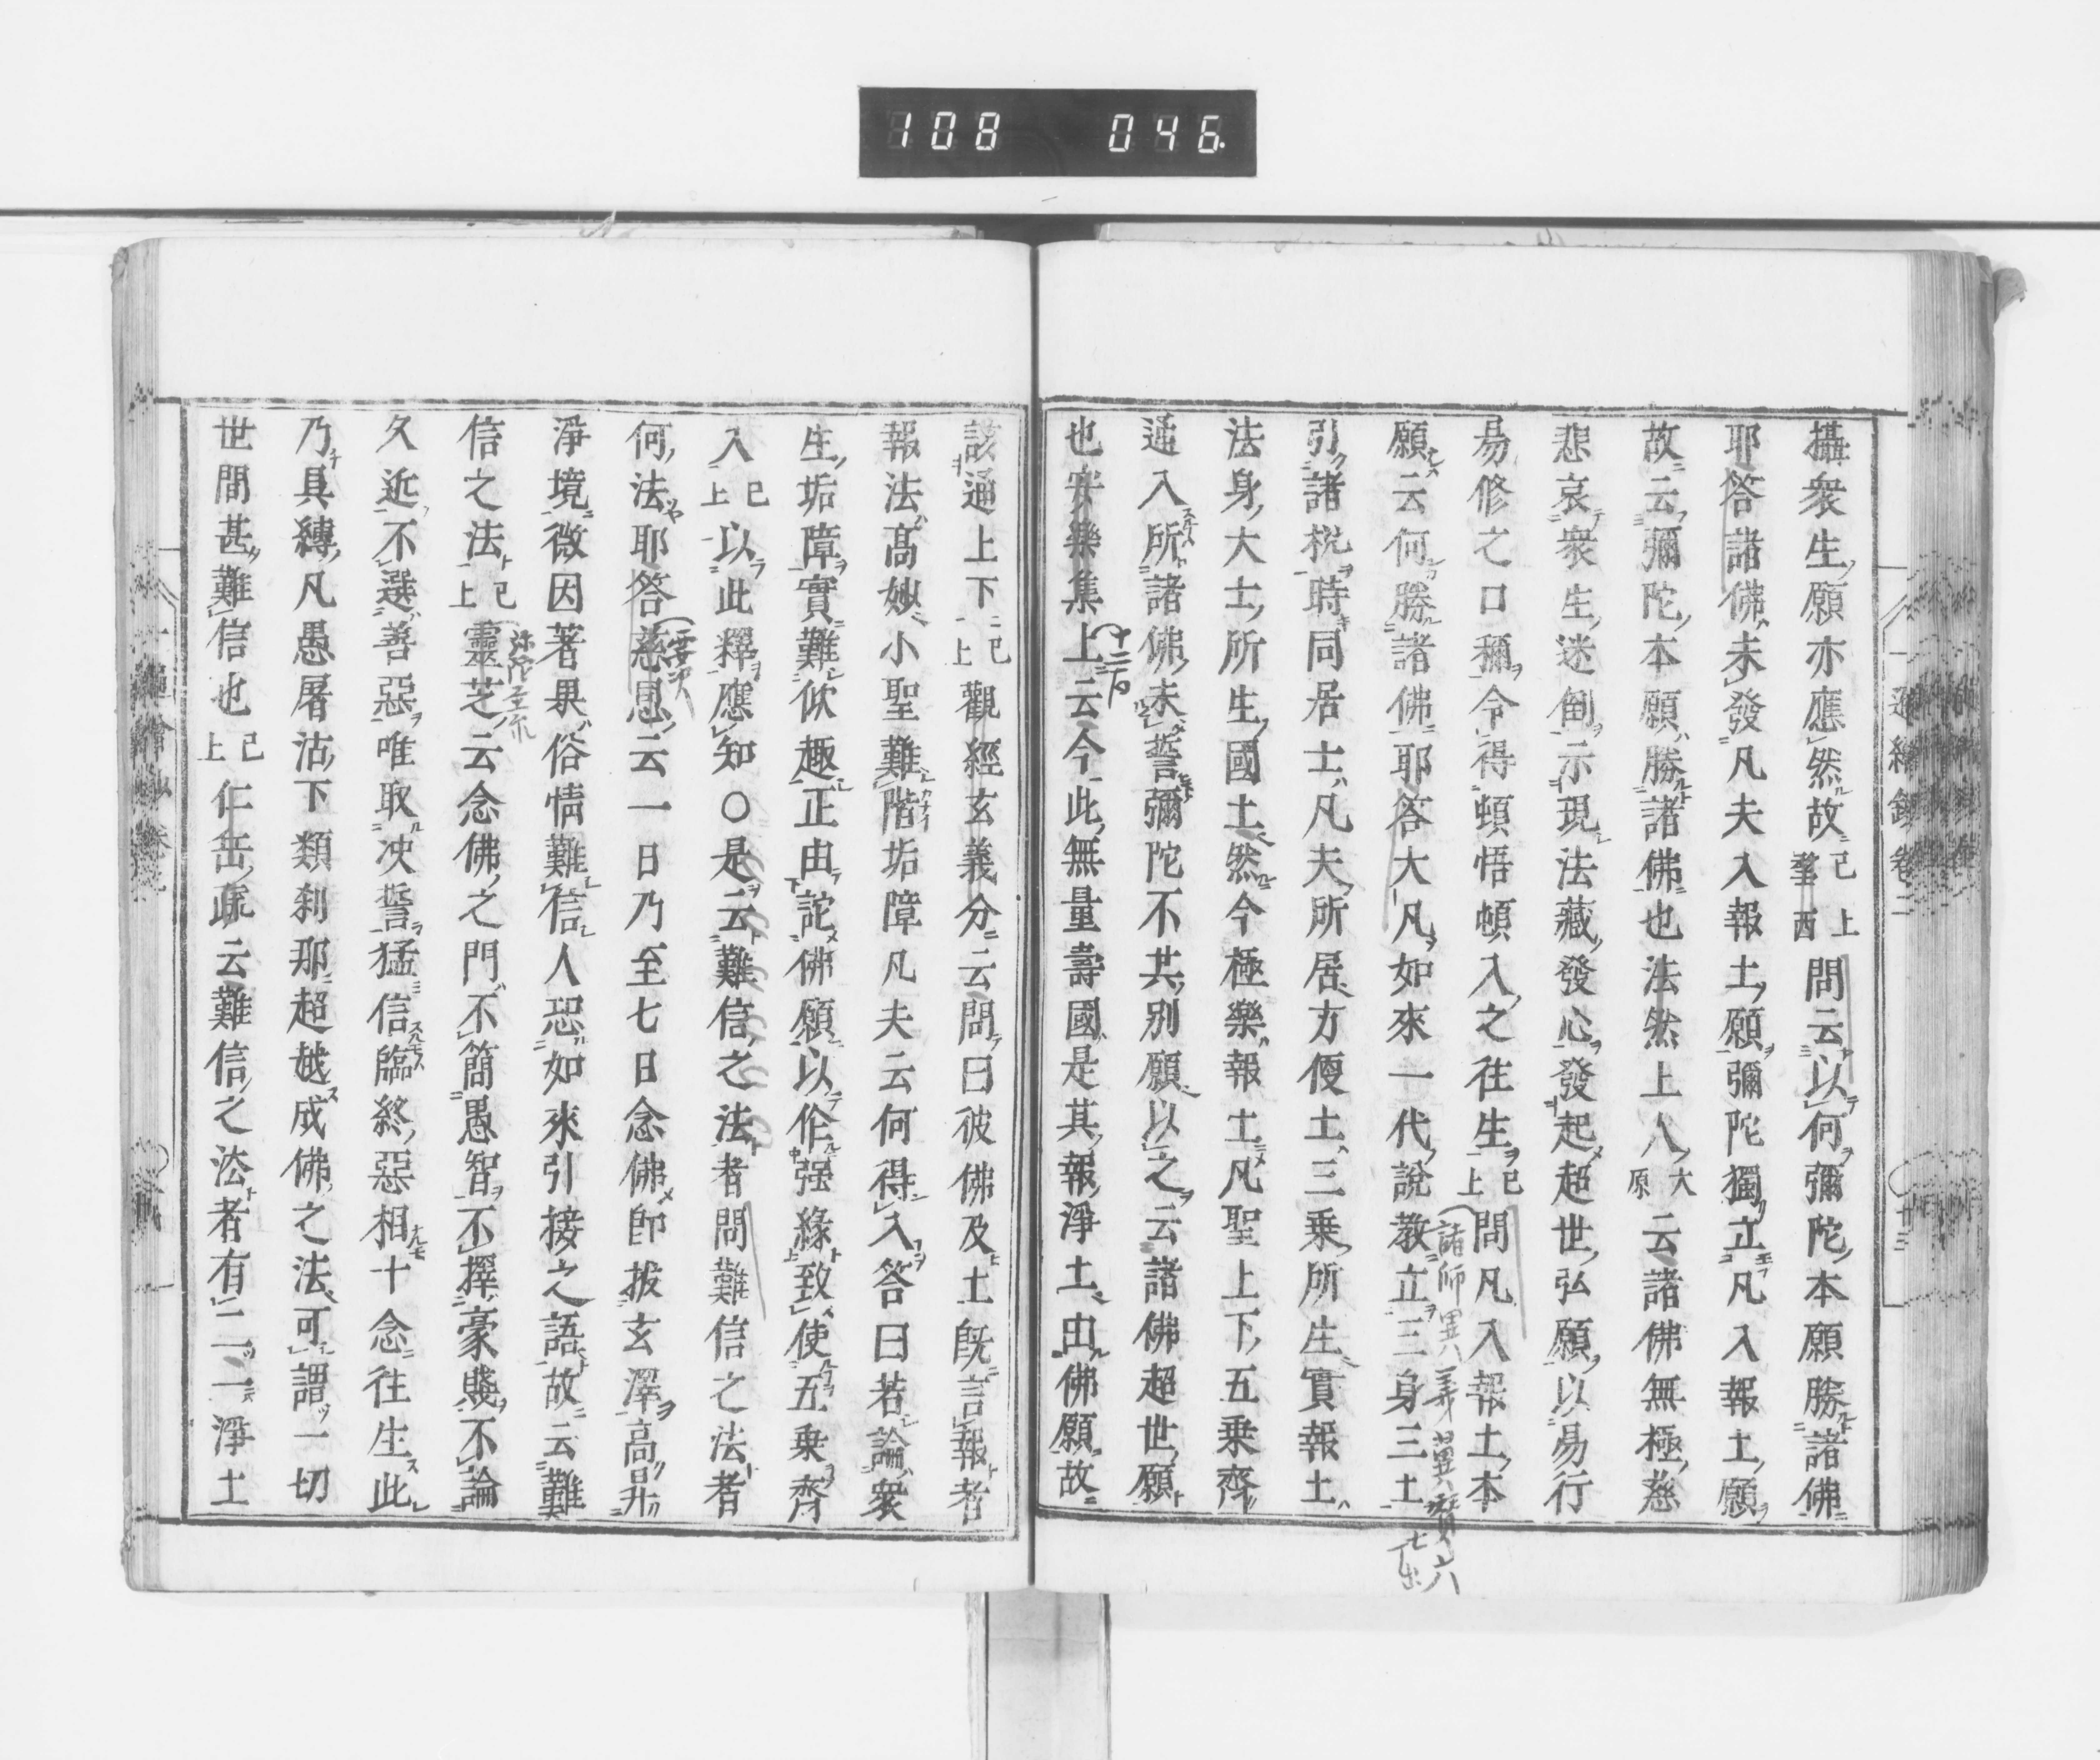 108 046
攝衆生願亦應然故已上聖西問云以何彌陀本願勝諸佛
耶答諸佛未發凡夫入報土願彌陀獨立凡入報土願
故云彌陀本願勝諸佛也法然上人大原云諸佛無極慈
悲哀衆生迷倒示現法藏發心發起超世弘願以易行
易修之口稱令得頓悟頓入之往生已上問凡入報土本
願云何勝諸佛耶答大凡如來一代說教立三身三土
引諸機時同居土凡夫所居方便土三乘所生實報土
法身大士所生國土然今極樂報土凡聖上下五乘齊
通入所諸佛未誓彌陀不共別願以之云諸佛超世願
也安樂集上云今此無量壽國是其報淨土由佛願故
該通上下已上觀經玄義分云問曰彼佛及土旣言報者
報法高妙小聖難階垢障凡夫云何得入答曰若論衆
生垢障實難欣趣正由託佛願以作强緣致使五乘齊
入已上以此釋應知〇是云難信之法者問難信之法者
何法耶答慈恩云一日乃至七日念佛卽拔玄澤高昇
淨境微因著果俗情難信人恐如來引接之語故云難
信之法已上靈芝云念佛之門不簡愚智不擇豪賤不論
久近不選善惡唯取决誓猛信臨終惡相十念往生此
乃具縛凡愚屠沽下類刹那超越成佛之法可謂一切
世間甚難信也已上仁岳疏云難信之法者有二一淨土